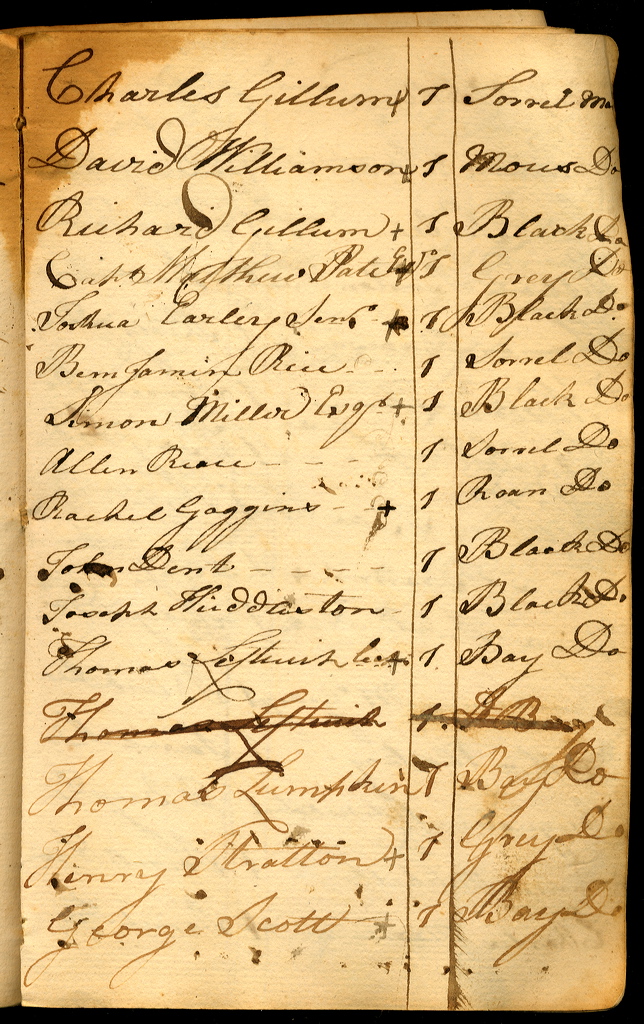 Charles Gillum + 1 Sorrel
David Williamson + 1 Mous Do
Richard Gillum + 1 Black Do
Capt Matthew Pate + 1 Grey Do
Joshua Earley Senr + 1 Black Do
Benjamin Rice - - 1 Sorrel Do
Simon Miller Esqr + 1 Black Do
Allen - - - 1 Sorrel Do
Rachel Goggins - + 1 Roan Do
John Dent - - - - 1 Black Do
Joseph Huddleston - 1 Black Do
Thomas Leftwich + 1 Bay Do
Thomas Leftwich 1.
Thomas Lumpkin 1 Bay Do
Henry Stratton + 1 Grey Do
George Scott + 1 Bay Do